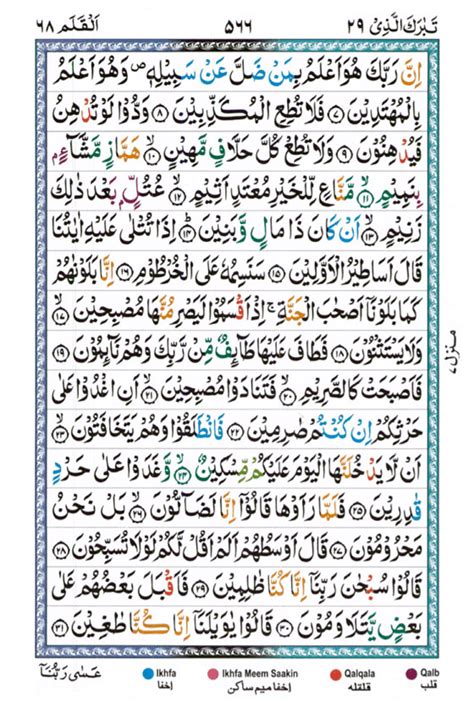 تَبٰرَكَ الَّذِیْ ٢٩ ٥٦٦ اَلْقَلَم ٦٨
اِنَّ رَبَّكَ هُوَ اَعْلَمُ بِمَنْ ضَلَّ عَنْ سَبِیْلِهٖ ص وَهُوَ اَعْلَمُ
بِالْمُهْتَدِیْنَ ٧ فَلَا تُطِعِ الْمُكَذِّبِیْنَ ٨ وَدُّوْا لَوْ تُدْهِنُ
فَیُدْهِنُوْنَ ٩ وَلَا تُطِعْ كُلَّ حَلَّافٍ مَّهِیْنٍ ١٠ هَمَّازٍ مَّشَّآءٍۭ
بِنَمِیْمٍ ١١ مَّنَّاعٍ لِّلْخَیْرِ مُعْتَدٍ اَثِیْمٍ ١٢ عُتُلٍّۭ بَعْدَ ذٰلِكَ
زَنِیْمٍ ١٣ اَنْ كَانَ ذَا مَالٍ وَّبَنِیْنَ ١٤ اِذَا تُتْلٰی عَلَیْهِ اٰیٰتُنَا
قَالَ اَسَاطِیْرُ الْاَوَّلِیْنَ ١٥ سَنَسِمُهٗ عَلَی الْخُرْطُوْمِ ١٦ اِنَّا بَلَوْنٰهُمْ
كَمَا بَلَوْنَاۤ اَصْحٰبَ الْجَنَّةِ ج اِذْ اَقْسَمُوْا لَیَصْرِمُنَّهَا مُصْبِحِیْنَ ١٧
وَلَا یَسْتَثْنُوْنَ ١٨ فَطَافَ عَلَیْهَا طَآئِفٌ مِّنْ رَّبِّكَ وَهُمْ نَآئِمُوْنَ ١٩
فَاَصْبَحَتْ كَالصَّرِیْمِ ٢٠ فَتَنَادَوْا مُصْبِحِیْنَ ٢١ اَنِ اغْدُوْا عَلٰی
حَرْثِكُمْ اِنْ كُنْتُمْ صٰرِمِیْنَ ٢٢ فَانْطَلَقُوْا وَهُمْ یَتَخَافَتُوْنَ ٢٣
اَنْ لَّا یَدْخُلَنَّهَا الْیَوْمَ عَلَیْكُمْ مِّسْكِیْنٌ ٢٤ وَّغَدَوْا عَلٰی حَرْدٍ
قٰدِرِیْنَ ٢٥ فَلَمَّا رَاَوْهَا قَالُوْۤا اِنَّا لَضَآلُّوْنَ ٢٦ بَلْ نَحْنُ
مَحْرُوْمُوْنَ ٢٧ قَالَ اَوْسَطُهُمْ اَلَمْ اَقُلْ لَّكُمْ لَوْلَا تُسَبِّحُوْنَ ٢٨
قَالُوْا سُبْحٰنَ رَبِّنَاۤ اِنَّا كُنَّا ظٰلِمِیْنَ ٢٩ فَاَقْبَلَ بَعْضُهُمْ عَلٰی
بَعْضٍ یَّتَلَاوَمُوْنَ ٣٠ قَالُوْا یٰوَیْلَنَاۤ اِنَّا كُنَّا طٰغِیْنَ ٣١
منزل ٧
عَسٰی رَبُّنَاۤ
Ikhfa اخفا
Ikhfa Meem Saakin اخفا میم ساکن
Qalqala قلقله
Qalb قلب